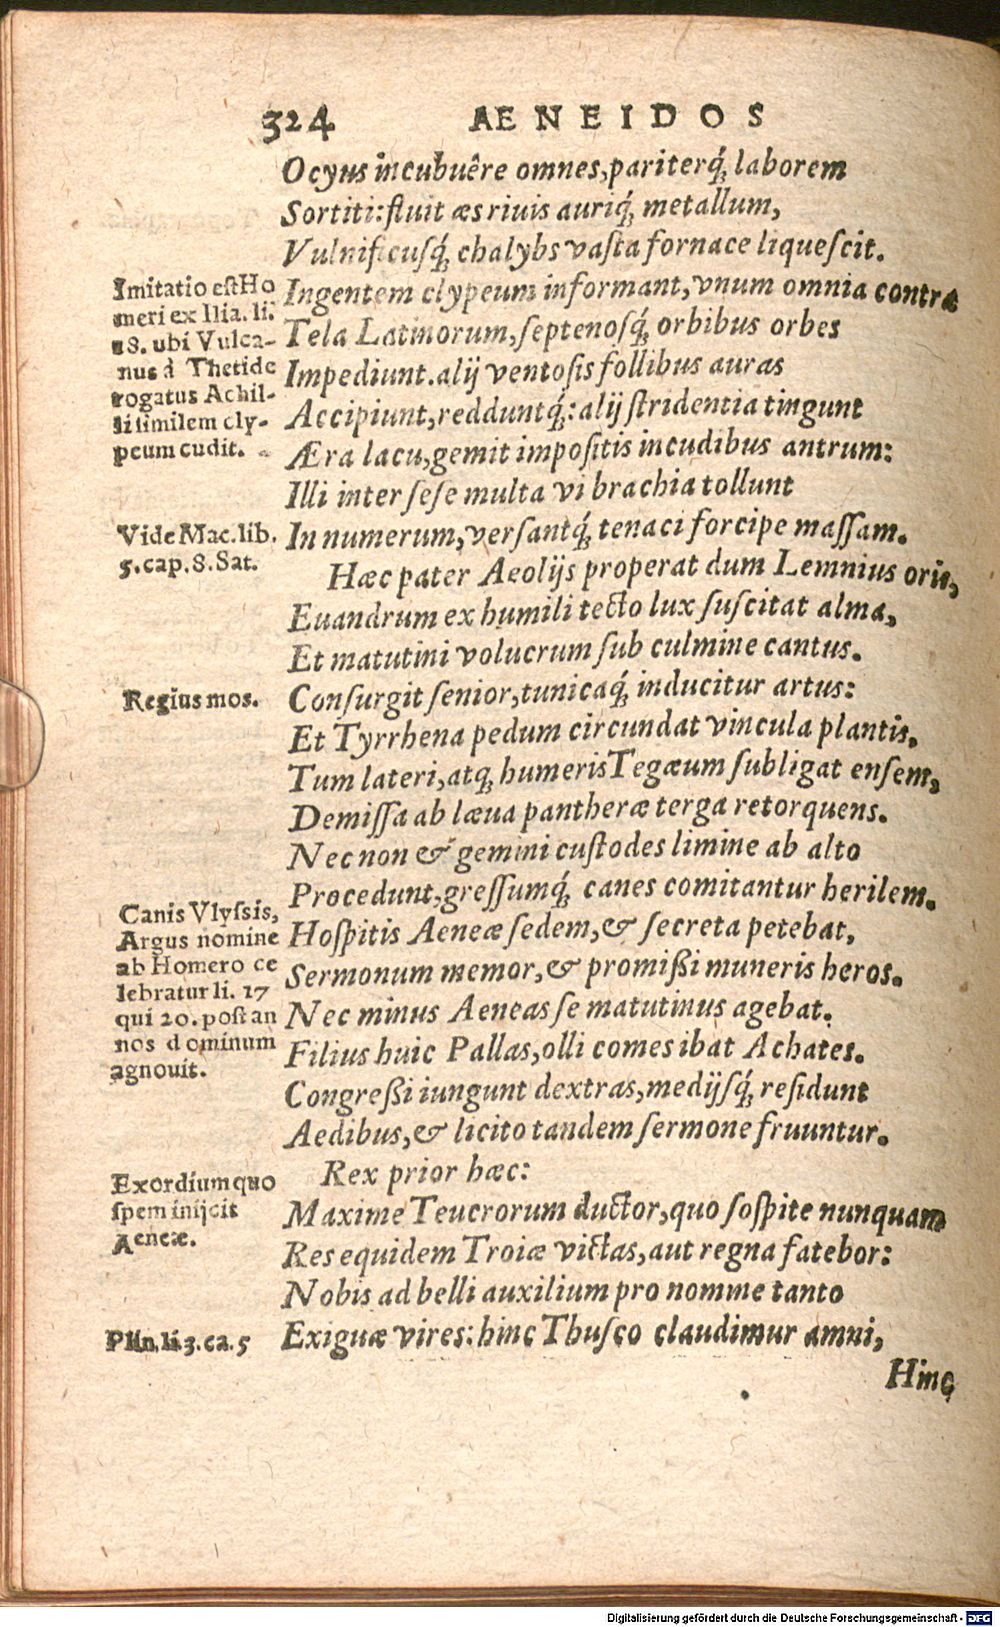 324 AENEIDOS
Ocyus incubuêre omnes, pariterq́; laborem
Sortiti: fluit æs riuis auriq́; metallum,
Vulnificusq́; chalybs vasta fornace liquescit.
Ingentem clypeum informant, vnum omnia contra
Tela Latinorum, septenosq́; orbibus orbes
Impediunt. alij ventosis follibus auras
Accipiunt, redduntq́;: alij stridentia tingunt
Æra lacu, gemit impositis incudibus antrum:
Illi inter sese multa vi brachia tollunt
In numerum, versantq́; tenaci forcipe massam.
Hæc pater Aeolijs properat dum Lemnius oris,
Euandrum ex humili tecto lux suscitat alma,
Et matutini volucrum sub culmine cantus.
Consurgit senior, tunicaq́; inducitur artus:
Et Tyrrhena pedum circundat vincula plantis.
Tum lateri, atq; humeris Tegæum subligat ensem,
Demissa ab læua pantheræ terga retorquens.
Nec non & gemini custodes limine ab alto
Procedunt, gressumq́; canes comitantur herilem.
Hospitis Aeneæ sedem, & secreta petebat,
Sermonum memor, & promißi muneris heros.
Nec minus Aeneas se matutinus agebat.
Filius huic Pallas, olli comes ibat Achates.
Congreßi iungunt dextras, medijsq́; residunt
Aedibus, & licito tandem sermone fruuntur.
Rex prior hæc:
Maxime Teucrorum ductor, quo sospite nunquam
Res equidem Troiæ victas, aut regna fatebor:
Nobis ad belli auxilium pro nomine tanto
Exiguæ vires: hinc Thusco claudimur amni,
Hinc
Imitatio est Ho
meri ex Ilia. li.
18. ubi Vulca-
nus à Thetide
rogatus Achil-
li similem cly-
peum cudit.
Vide Mac. lib.
5. cap. 8. Sat.
Regius mos.
Canis Vlyssis,
Argus nomine
ab Homero ce
lebratur li. 17
qui 20. post an
nos dominum
agnouit.
Exordium quo
spem inijcit
Aeneæ.
Plin. li 3. ca. 5
Digitalisierung gefördert durch die Deutsche Forschungsgemeinschaft - DFG